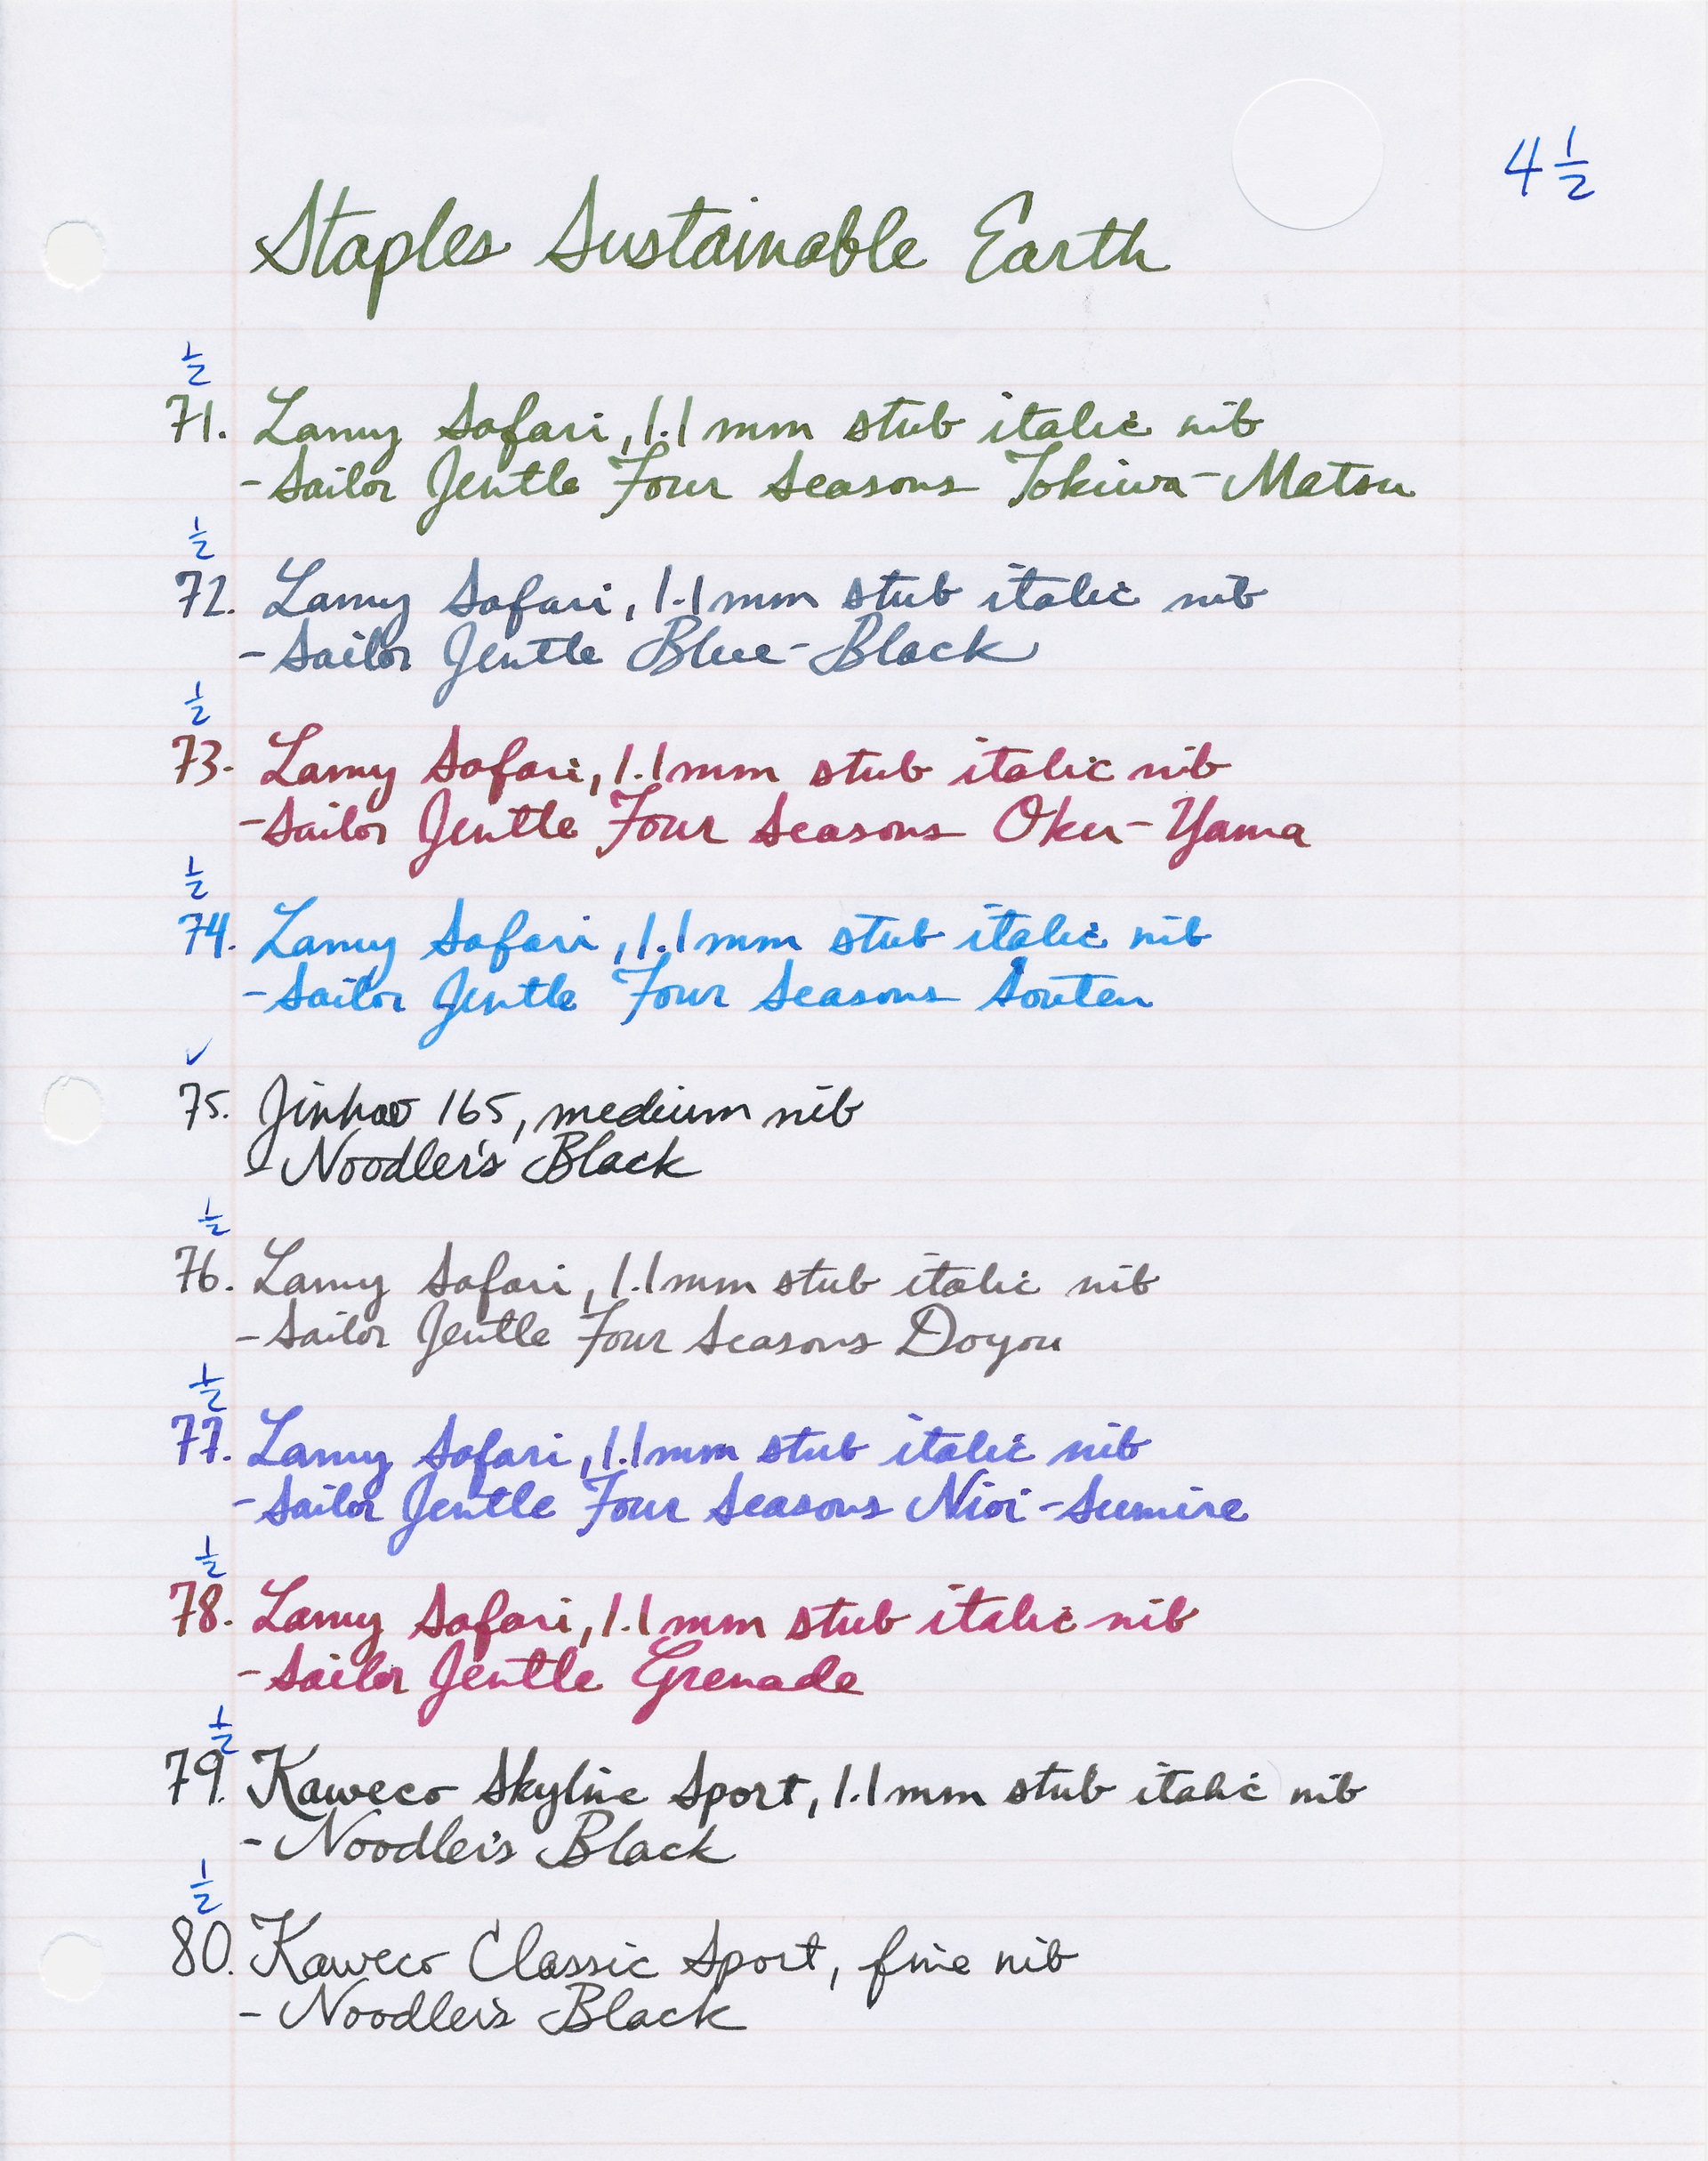 4 1/2
Staples Sustainable Earth
1/2
71. Lamy Safari, 1.1 mm stub italic nib
- Sailor Jentle Four Seasons Tokiwa-Matsu
1/2
72. Lamy Safari, 1.1 mm stub italic nib
- Sailor Jentle Blue-Black
1/2
73. Lamy Safari, 1.1 mm stub italic nib
- Sailor Jentle Four Seasons Oku-Yama
1/2
74. Lamy Safari, 1.1 mm stub italic nib
- Sailor Jentle Four Seasons Souten
✓
75. Jinhao 165, medium nib
- Noodler's Black
1/2
76. Lamy Safari, 1.1 mm stub italic nib
- Sailor Jentle Four Seasons Doyou
1/2
77. Lamy Safari, 1.1 mm stub italic nib
- Sailor Jentle Four Seasons Nioi-Sumire
1/2
78. Lamy Safari, 1.1 mm stub italic nib
- Sailor Jentle Grenade
1/2
79. Kaweco Skyline Sport, 1.1 mm stub italic nib
- Noodler's Black
1/2
80. Kaweco Classic Sport, fine nib
- Noodler's Black